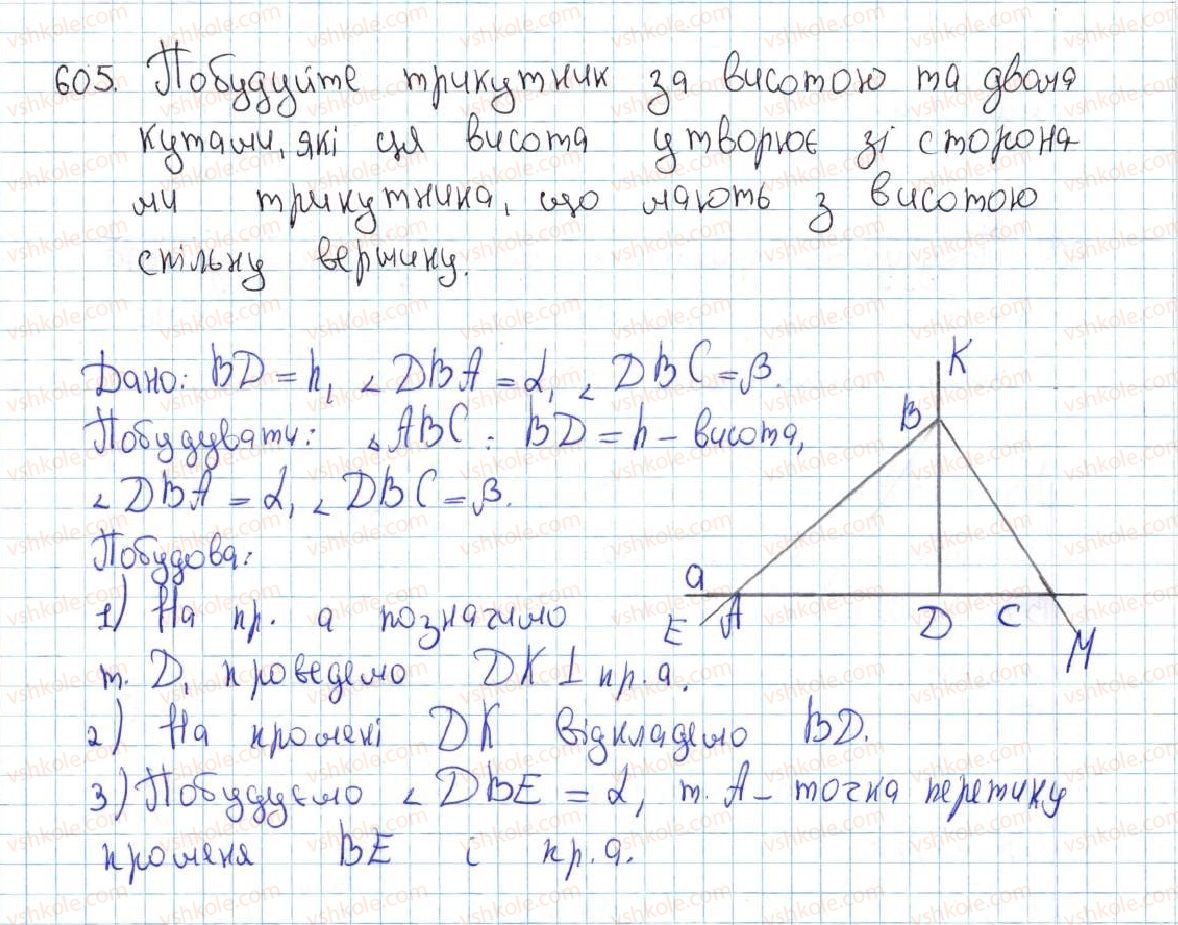 605. Побудуйте трикутник за висотою та двома
кутами, які ця висота утворює зі сторона
ми трикутника, що мають з висотою
спільну вершину.
Дано: BD = h, ∠DBA = α, ∠DBC = β.
Побудувати: △ABC: BD = h – висота,
∠DBA = α, ∠DBC = β.
Побудова:
1) На пр. а позначимо
т. D, проведемо DK ⊥ пр. а.
2) На промені DK відкладемо BD.
3) Побудуємо ∠DBE = α, т. A – точка перетину
променя BE і пр. а.
K
B
a
E A D C M
vshkole.com